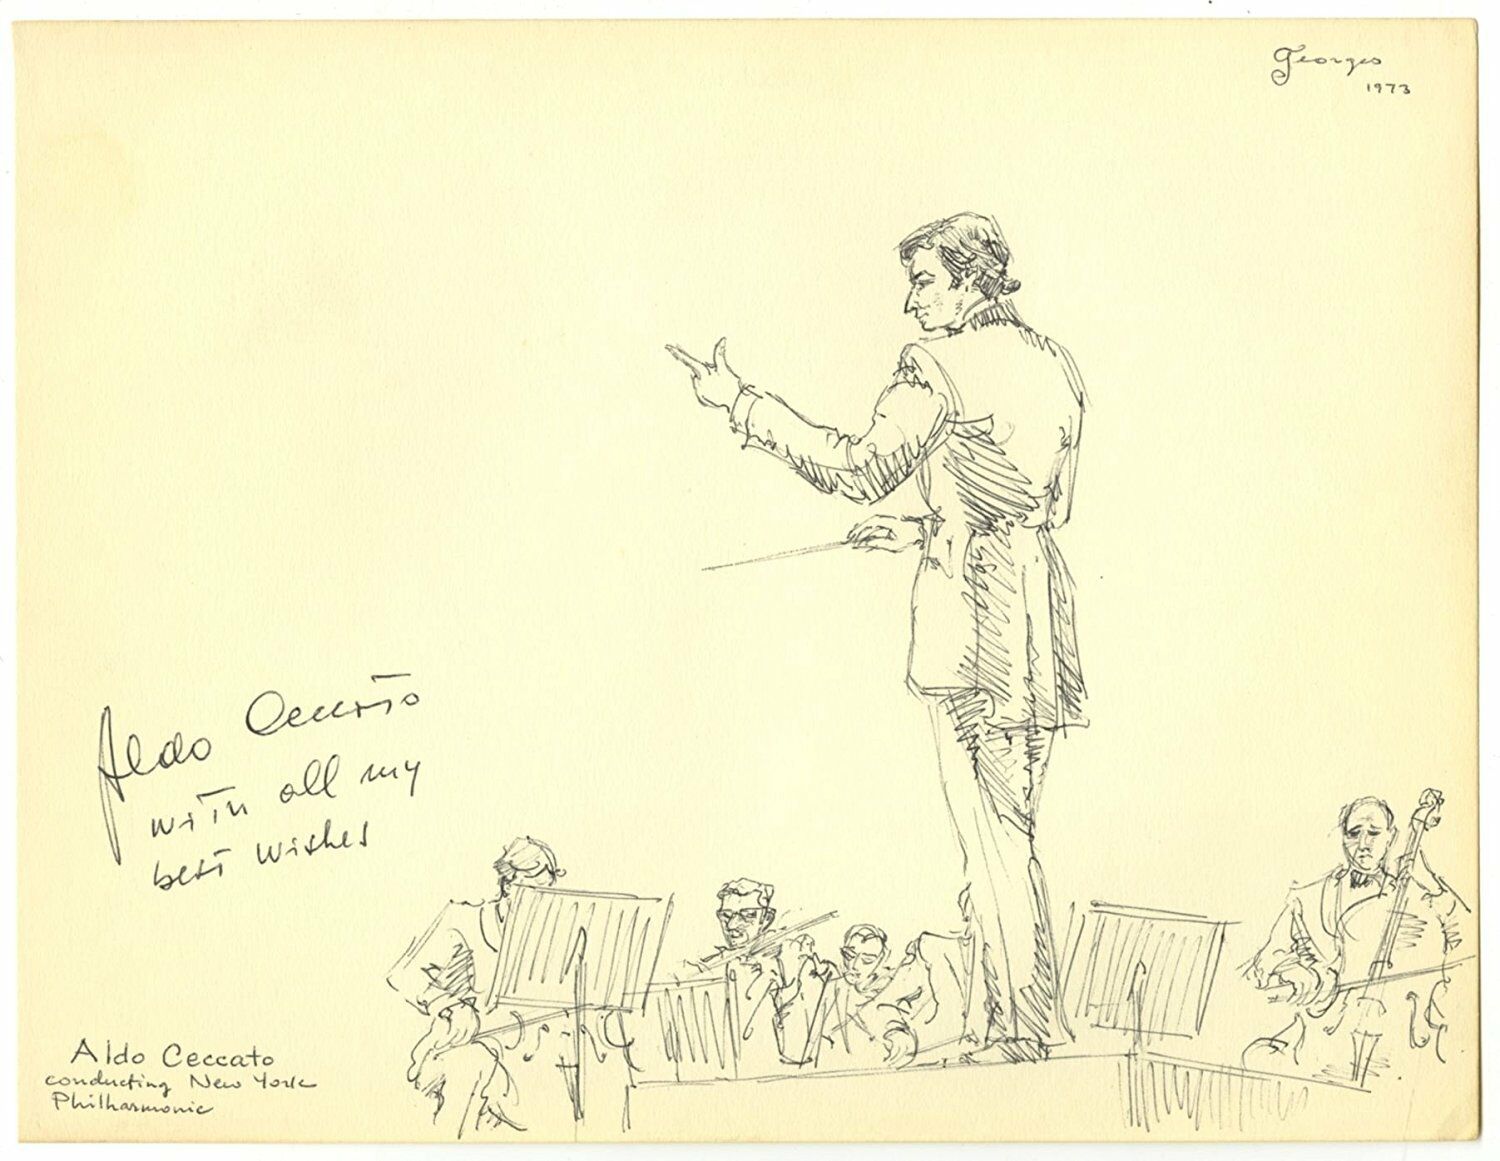 Georges
1973
Aldo Ceccato
with all my
best wishes
Aldo Ceccato
conducting New York
Philharmonic